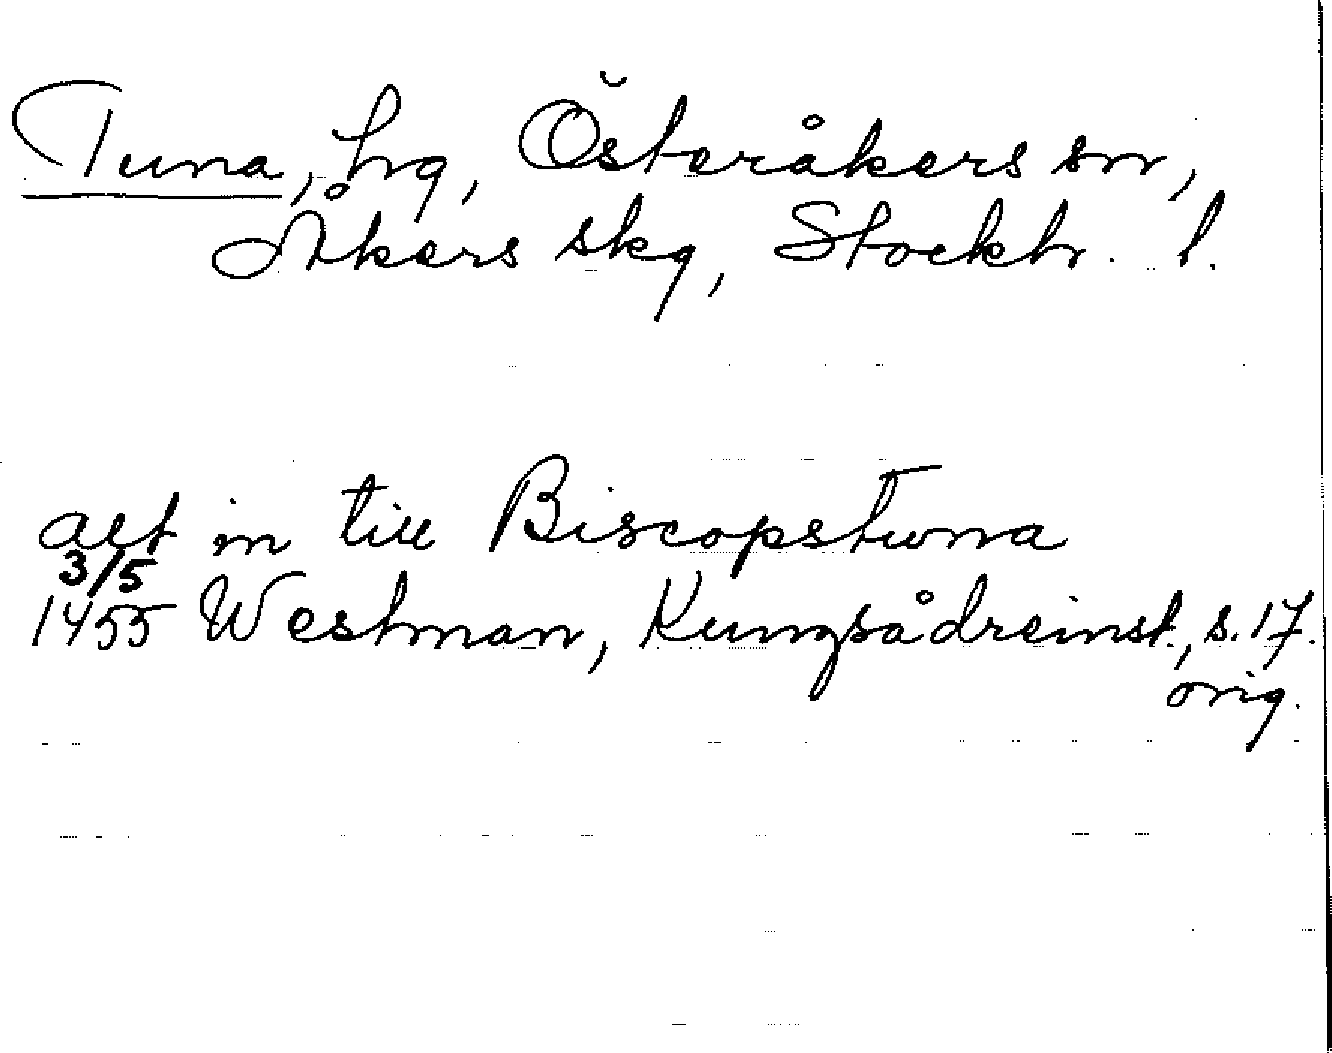 Tuna, hrg, Österåkers sn,
Åkers skg, Stockh. l.
alt in till Biscopstuna
3/5
1455 Westman, Kungsådreinst., s. 17.
orig.